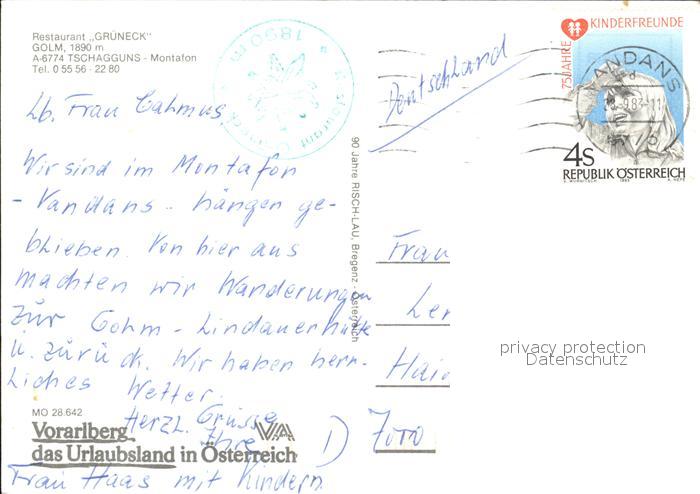 Restaurant „GRÜNECK"
GOLM, 1890 m
A-6774 TSCHAGGUNS - Montafon
Tel. 0 55 56 - 22 80
75 JAHRE KINDERFREUNDE
VANDANS
4S
REPUBLIK ÖSTERREICH
Deutschland
Lb. Frau Cahmus,
Wir sind im Montafon
- Vandans - hängen ge-
blieben. Von hier aus
machten wir Wanderungen
zur Gohm - Lindauerhütte
u. zurück. Wir haben herr-
liches Wetter.
Herzl. Grüsse
Ihre
Frau Haas mit Kindern
90 Jahre RISCH-LAU, Bregenz - Österreich
Frau
Ler
Haid
privacy protection
Datenschutz
MO 28.642
Vorarlberg
das Urlaubsland in Österreich